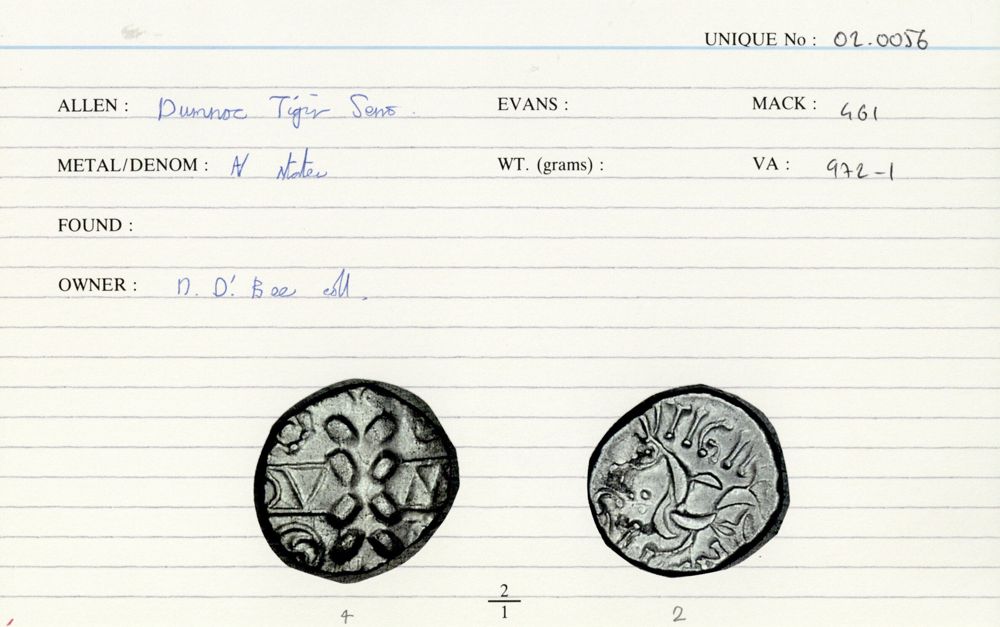 UNIQUE No : 02.0056
ALLEN : Dumnoc Tigir Seno. EVANS : MACK : 461
METAL/DENOM : AV Stater WT. (grams) : VA : 972-1
FOUND :
OWNER : D. D. Bee coll.
2
4 1 2